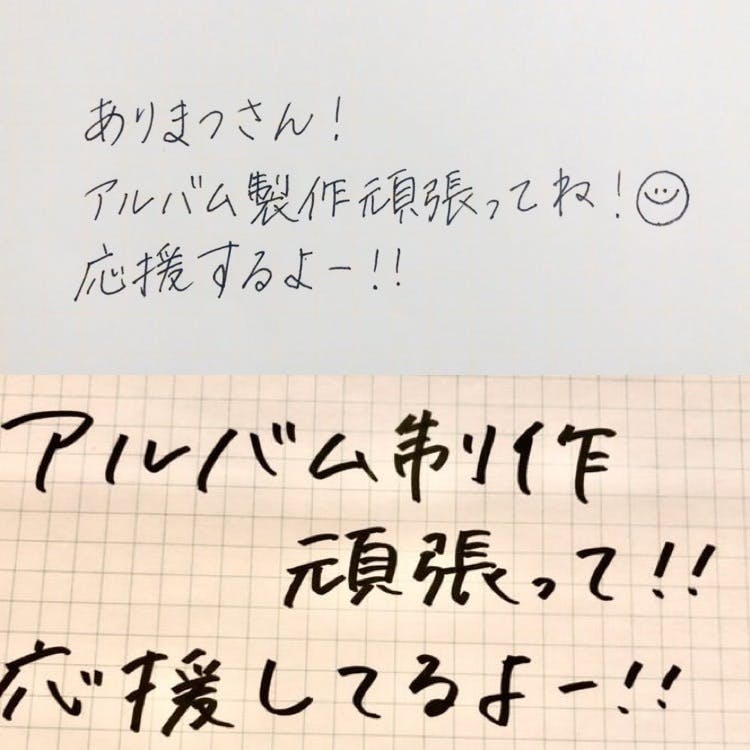 ありまつさん!
アルバム製作頑張ってね!
応援するよー!!
アルバム制作
頑張って!!
応援してるよー!!